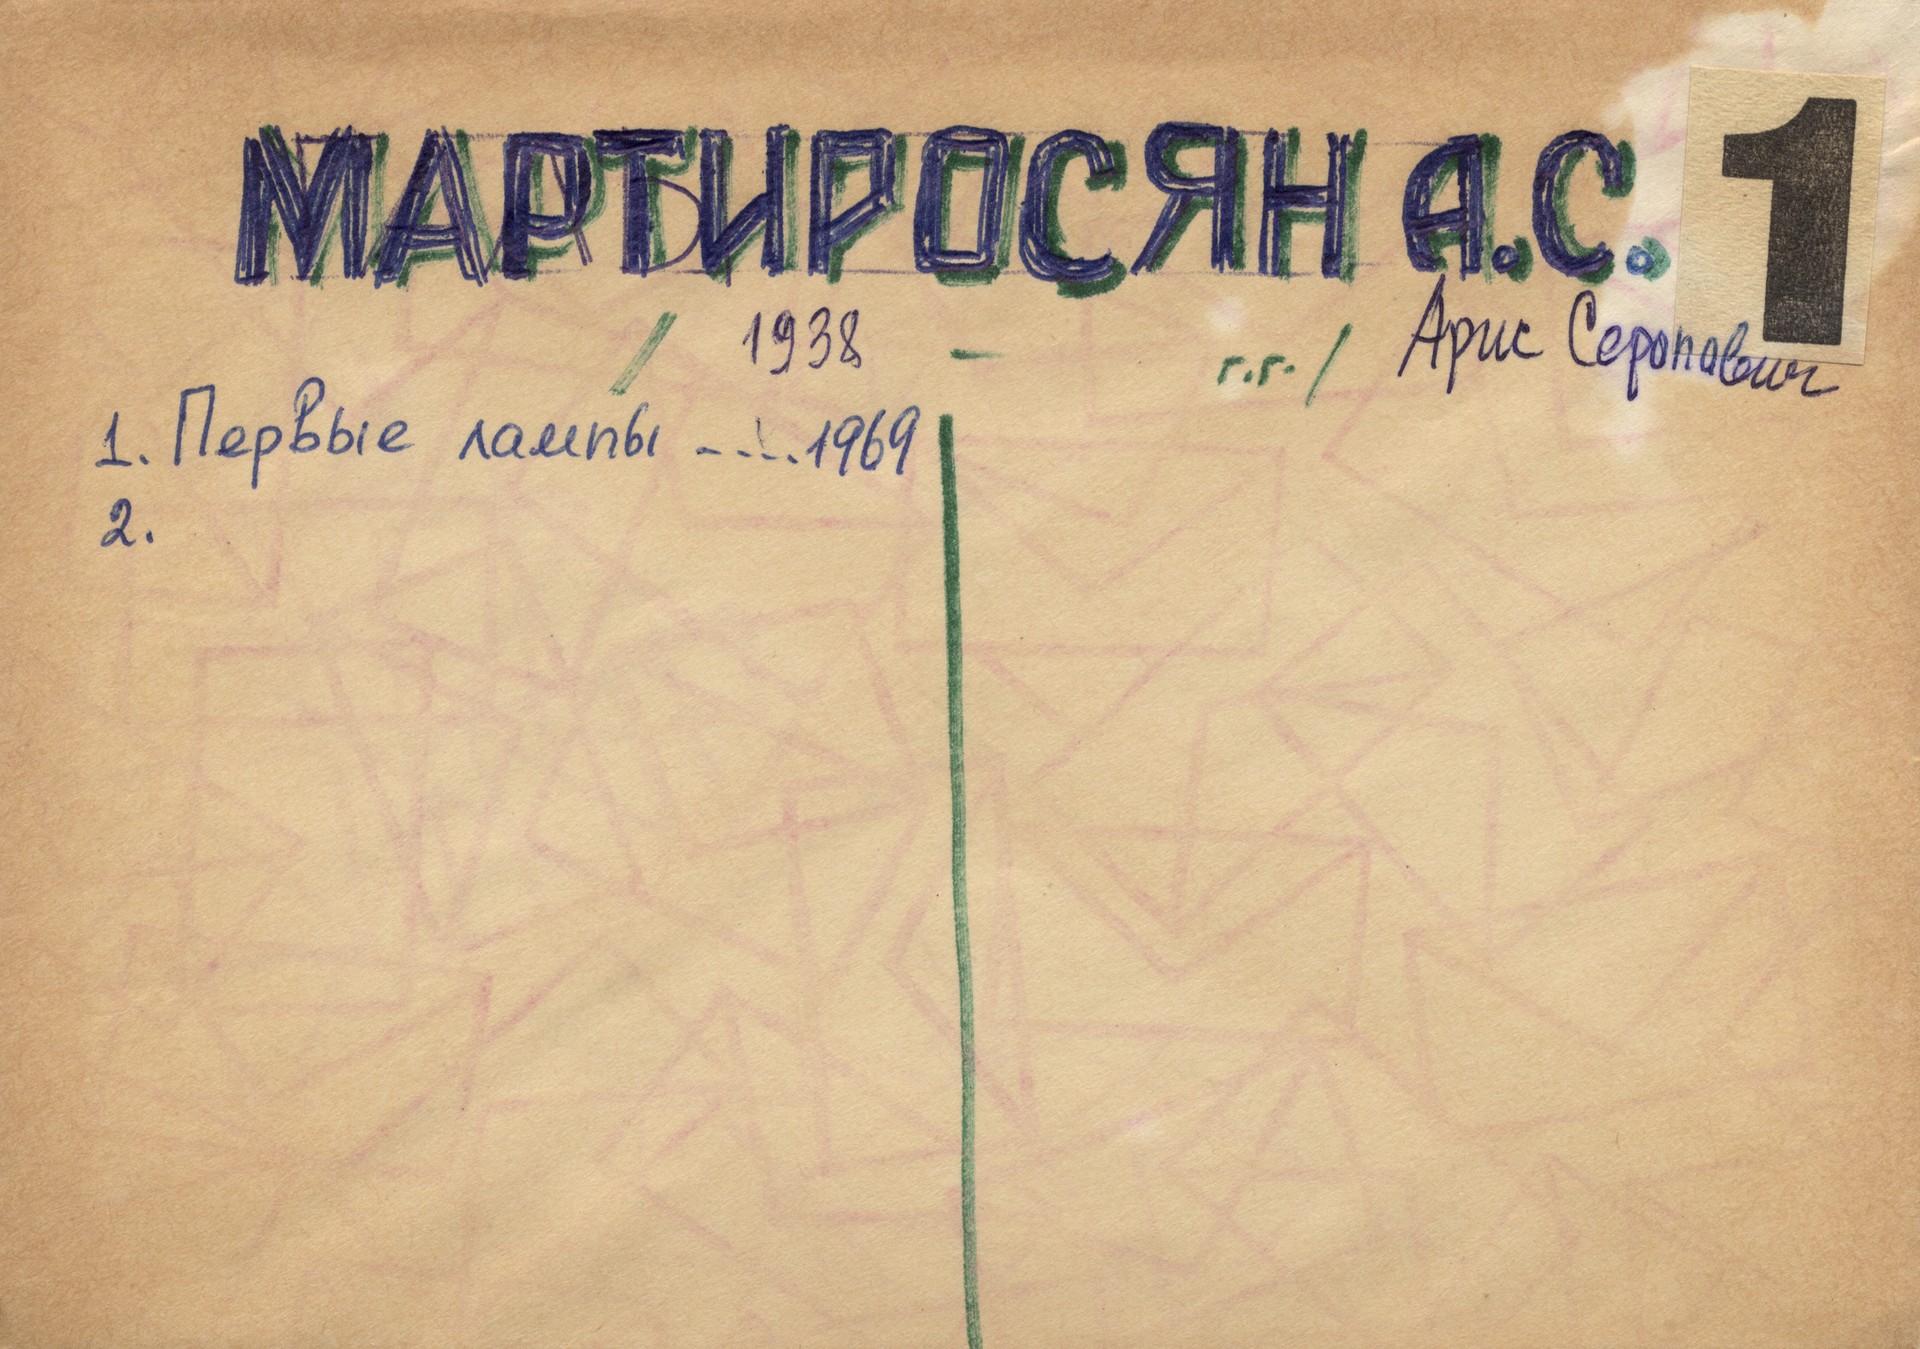 МАРТИРОСЯН А.С. 1
/ 1938 – г.г./ Арис Серопович
1. Первые лампы ..... 1969
2.